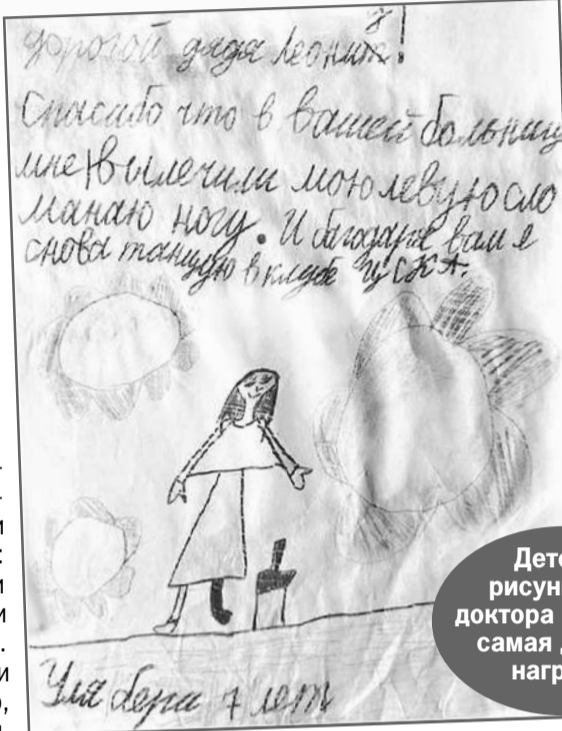 дорогой дядя Леонид!
Спасибо что в вашей больниц
мне вылечили мою левую сло
манаю ногу. И багодаря вам я
снова танцую в клубе ЦСКА.
Уля 7 лет
Детс
рисун
доктора
самая
нагр